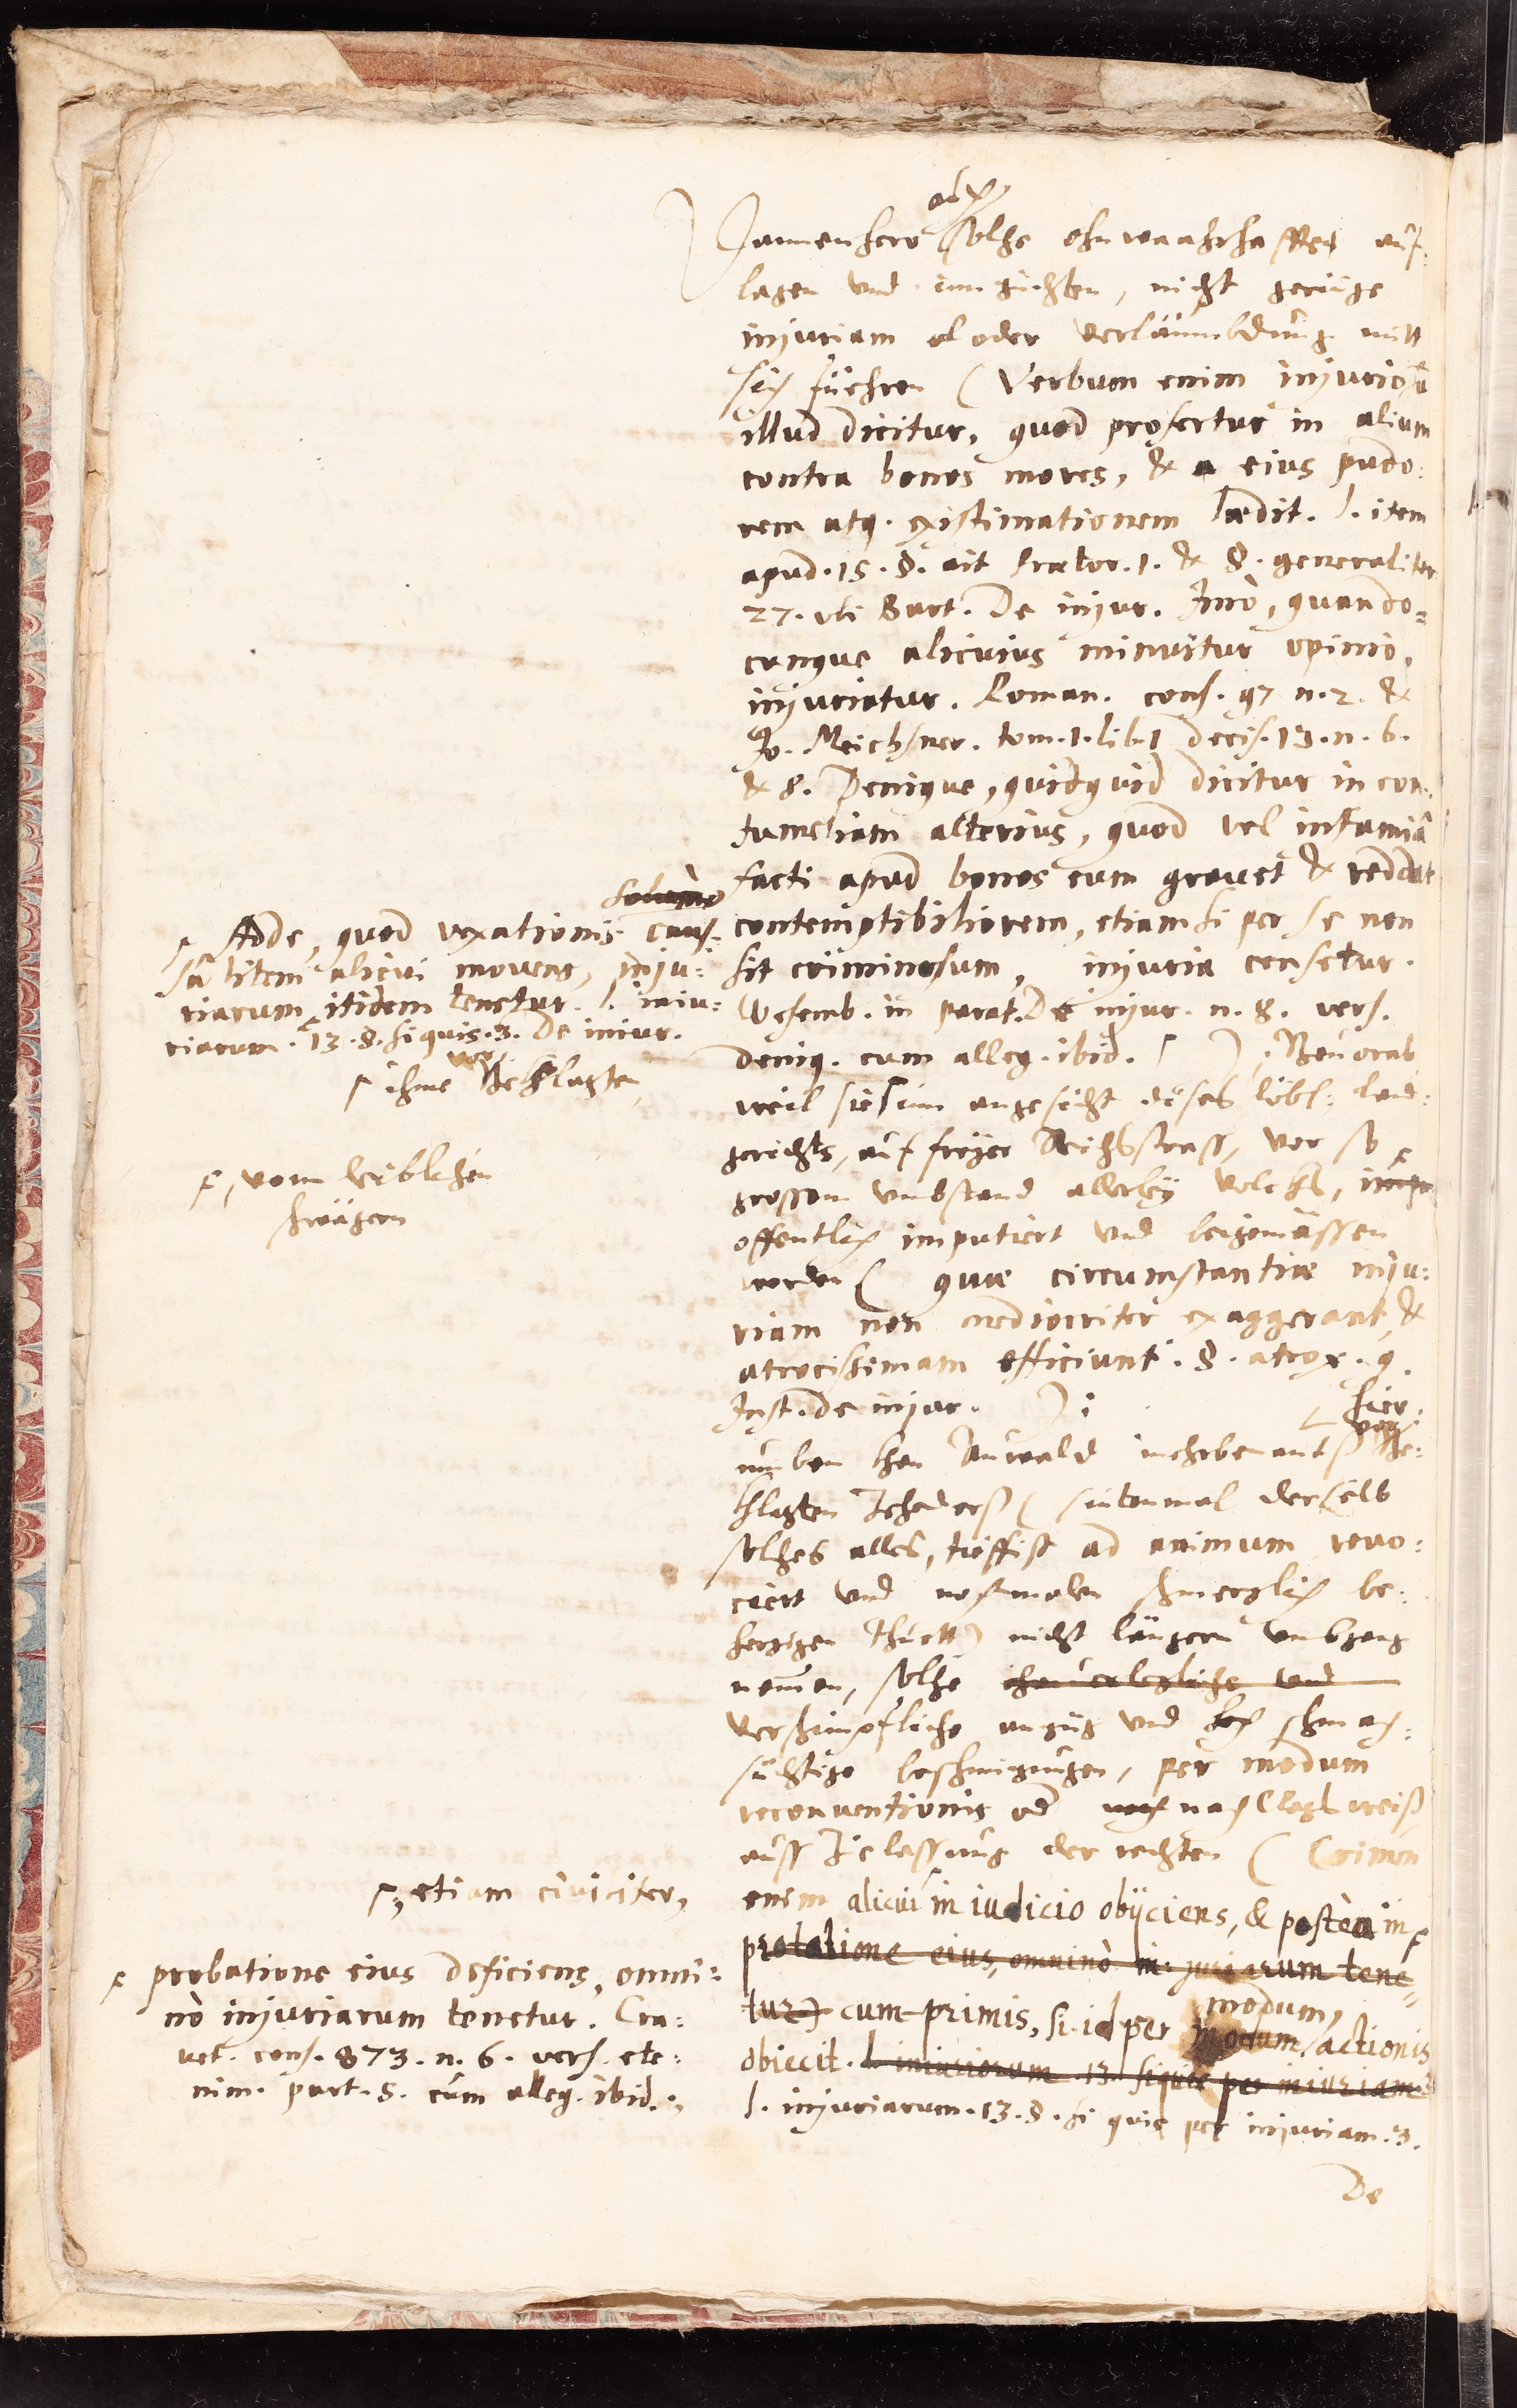 auch
Dannenhero solche ohnwaahrhafftes auf-
lagen vnd inn züchten, nicht geringe
injuriam oder verläumbdung mitt
sich führen (Verbum enim injuriosũ
illud dicitur, quod profertur in alium
contra bonos mores, & eius pudo:
rem atq. existimationem lædit. l. item
apud. 15. §. ait Prætor. 1. & §. generaliter
27. vbi Bart. De injur. Imò, quando=
cunque alicuius minuitur opinio,
injuriatur. Roman. cons. 97 n. 2. &
Jo. Meichsner. tom. 1. lib. 1 decis. 13. n. 6.
& 8. Denique, quidquid dicitur in con-
tumeliam alterius, quod vel infamiâ
facti apud bonos eum gravet & reddat
contemptibiliorem, etiamsi per se non
sit criminosum, injuria censetur.
Wesemb. in parat. De injur. n. 8. vers.
deniq. cum alleg. ibid. ꜛ ), Beuorab
weil sie ꜛ inn angesicht dises löbl: land-
gerichts, auf freyer Reichsstrass, vor so
grossem vmbstand allerley volckhs,
offentlich imputiert vnd beigemässen
worden ( quæ circumstantiæ inju:
riam non mediocriter exaggerant, &
atrocissimam efficiunt. §. atrox. 9.
Inst. de injur. ) :
hier
vor
mehrbenants Be:
klagten (sintenmal derselb
solches alles, tieffist ad animum reuo:
ciert vnd nochmalen schmerzlich be:
herzigen thuett) nicht längern vmbgang
nemmen, solche
verschimpfliche anzüg vnd schmach:
süchtige beschmizungen, per modum
reconuentionis od nach Clagsweiss
auss Zuelassung der rechten ( Crimen
enim alicui ꜛ in iudicio obijciens, & posteà in ꜛ
probatione eius, omninò in- juriarum tene=
tur) cum primis, si id per modum actionis
modum,
obiecit. l. iniuriarum. 13. siquis per iniuriam. 3
l. injuriarum. 13. §. si quis per injuriam. 3.
De
solùm
ꜛ Adde, quod vexationis cau-
sâ litem alicui mouens, inju:
riarum itidem tenetur. l. iniu:
riarum. 13. §. si quis. 3. De iniur.
ꜛ ihme Beklagten
ꜛ, vom leiblichen
schwägern
ꜛ, etiam ciuiliter,
ꜛ probatione eius deficiens, omni:
nò injuriarum tenetur. Cra:
vet. cons. 873. n. 6. vers. ete:
nim. part. 5. cum alleg. ibid.,